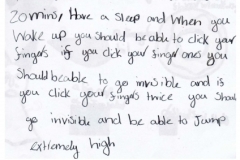 20mins, Have a sleep and when you
wake up you should be able to click your
fingers if you click your finger ones you
should beable to go invisible and is
you click your fingers twice you shoul
go invisible and be able to Jump
extremely high